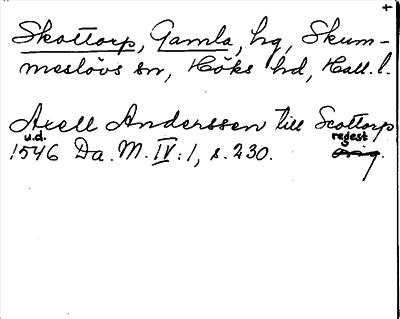 +
Skottorp, Gamla, hg, Skum-
meslövs sn, Höks hd, Hall. l.
Axell Anderssen till Scottorp
u.d. regest
1546 Da. M. IV:1, s. 230. orig.